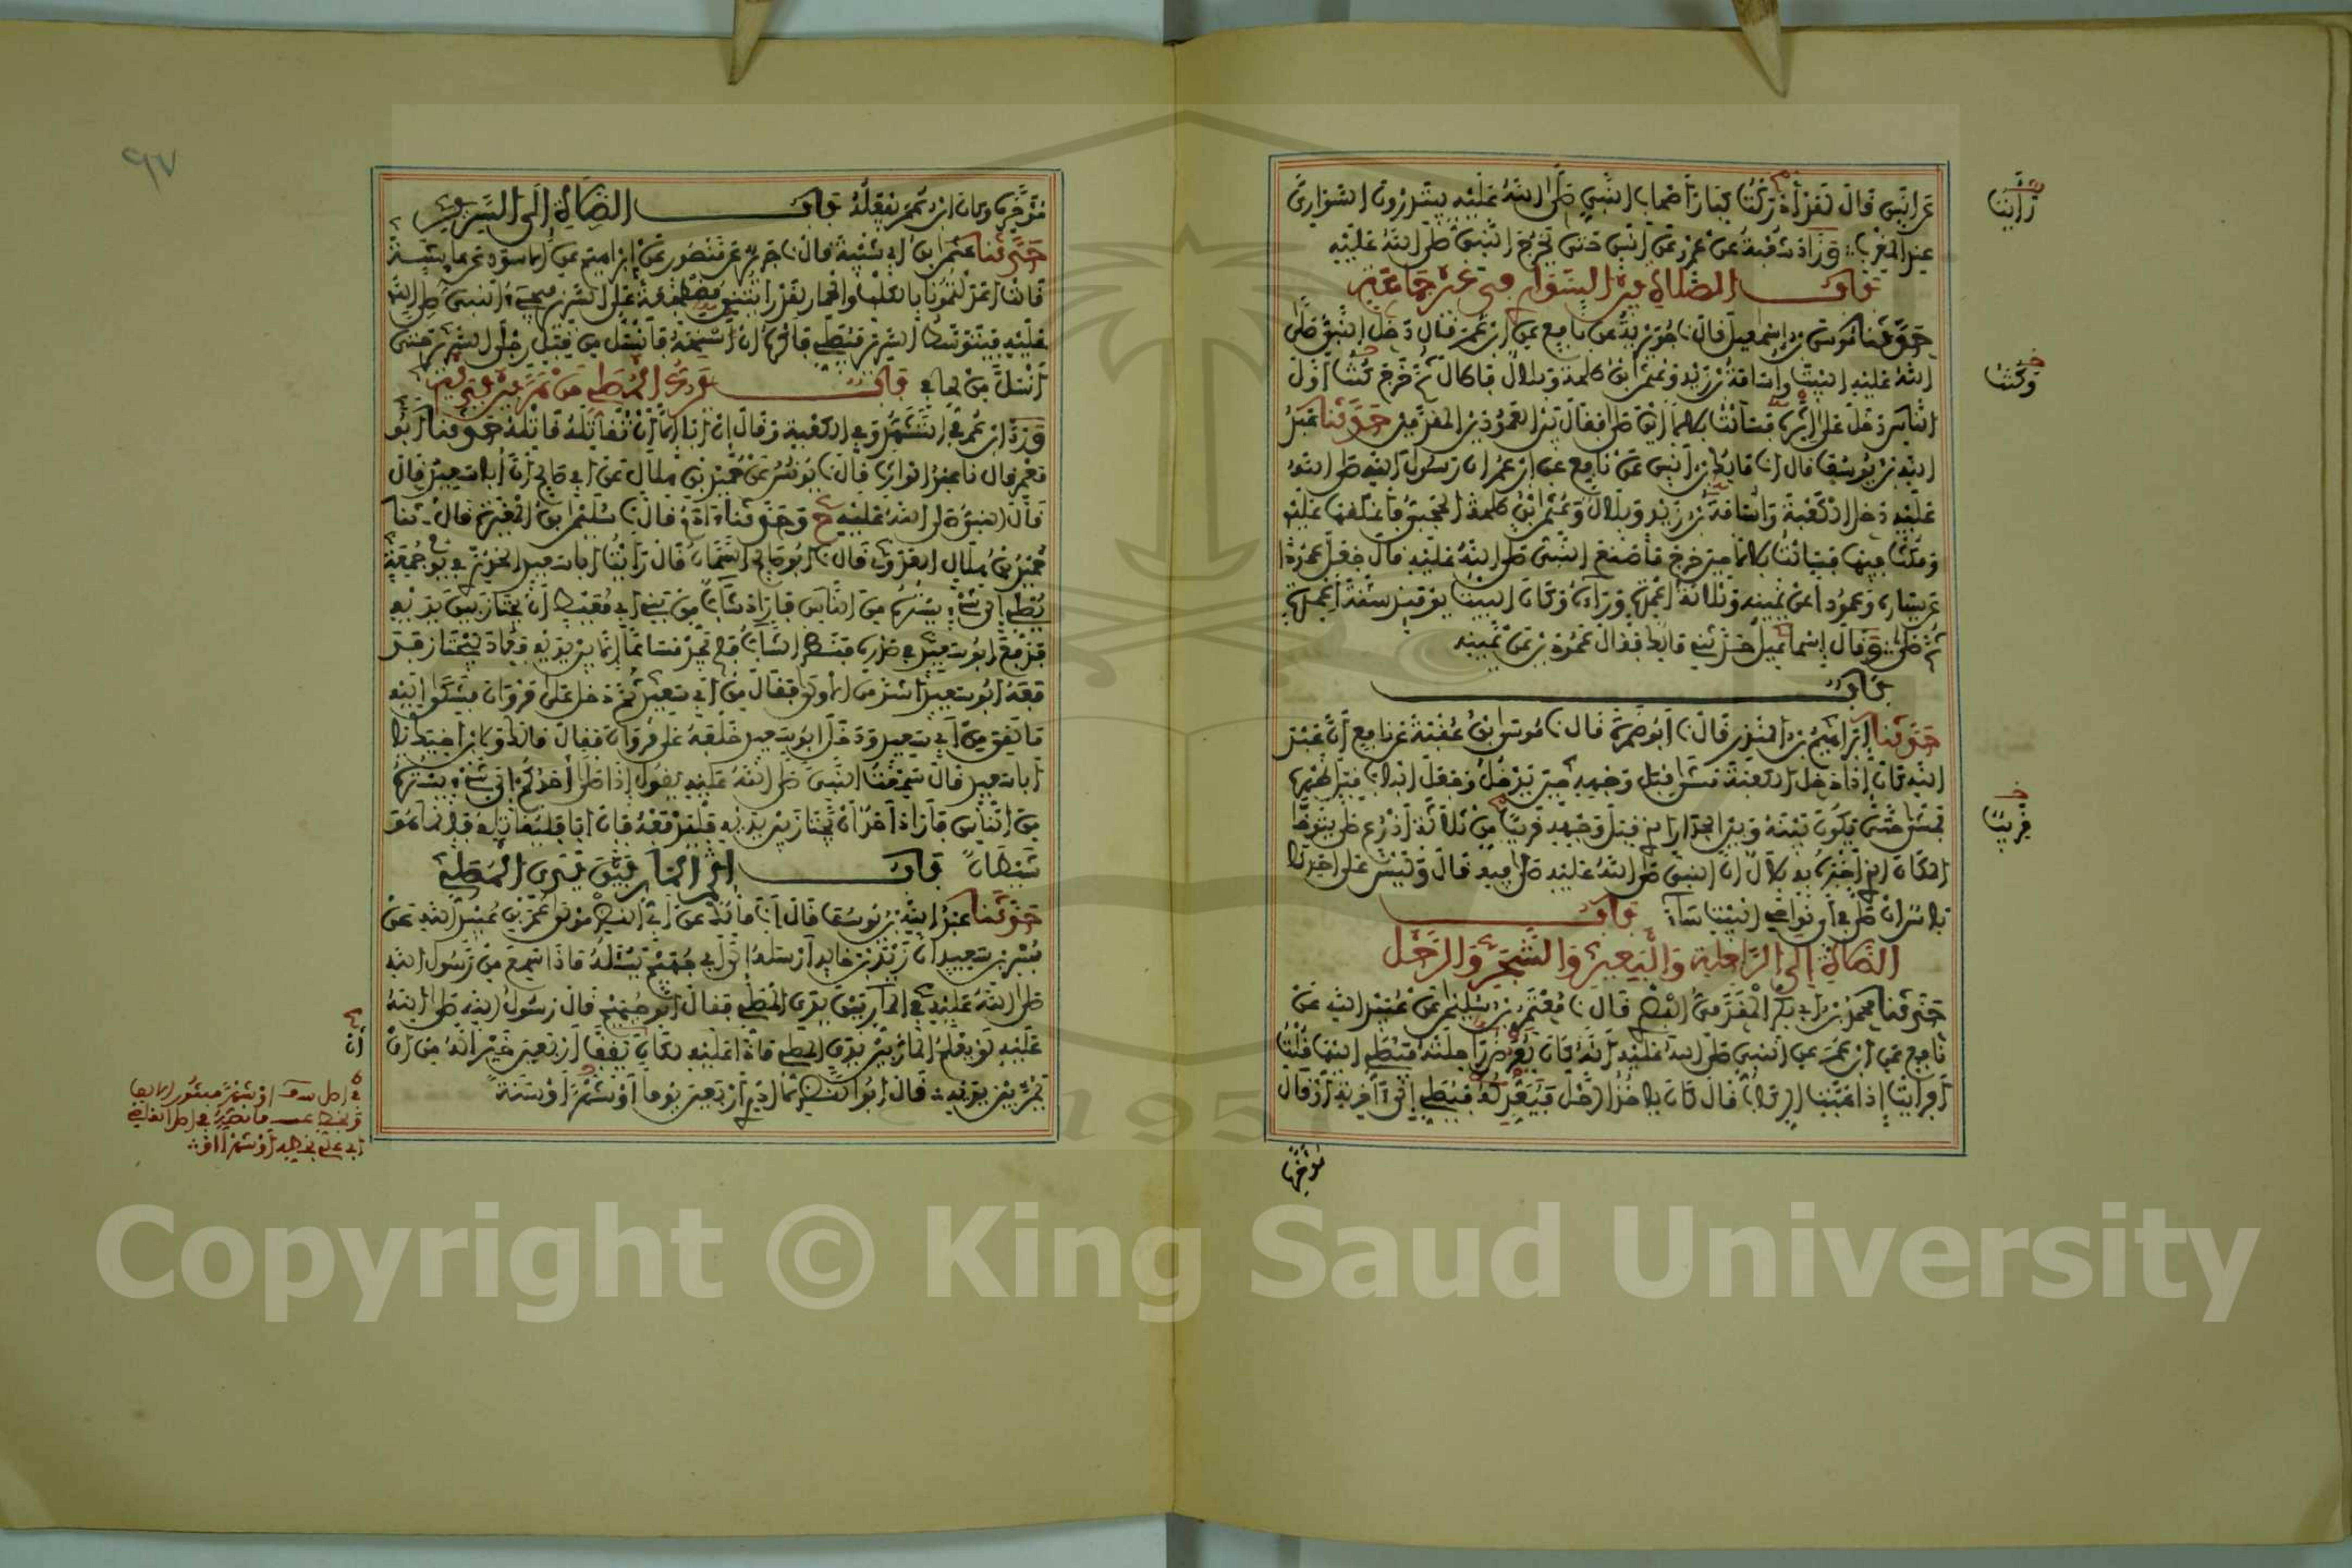 عن انس قال لقد أدركت كبار أصحاب النبي صلى الله عليه يبتدرون السواري
عند المغرب وزاد شعبة عن عمرو عن أنس حتى يخرج النبي صلى الله عليه
باب الصلاة بين السواري في غير جماعة
حدثنا موسى بن إسمعيل قال نا جويرية عن نافع عن ابن عمر قال دخل النبي صلى
الله عليه البيت وأسامة بن زيد وعثمن ابن طلحة وبلال فأطال ثم خرج كنت أول
الناس دخل على إثره فسألت بلالا أين صلى فقال بين العمودين المقدمين حدثنا عبد
الله بن يوسف قال انا مالك بن أنس عن نافع عن ابن عمر ان رسول الله صلى الله
عليه دخل الكعبة وأسامة بن زيد وبلال وعثمن ابن طلحة الحجبي فأغلقها عليه
ومكث فيها فسألت بلالا حين خرج ما صنع النبي صلى الله عليه قال جعل عمودا
عن يساره وعمودا عن يمينه وثلاثة أعمدة وراءه وكان البيت يومئذ ستة أعمدة
ثم صلى وقال إسماعيل حدثني مالك فقال عمودين عن يمينه
باب
حدثنا إبراهيم بن المنذر قال نا أبو ضمرة قال نا موسى ابن عقبة عن نافع أن عبد
الله كان إذا دخل الكعبة مشى قبل وجهه حين يدخل وجعل الباب قبل ظهره
فمشى حتى يكون بينه وبين الجدار الذي قبل وجهه قريبا من ثلاثة أذرع صلى يتوخى
المكان الذي أخبره به بلال ان النبي صلى الله عليه صلى فيه قال وليس على احدنا
باس ان صلى في أي نواحي البيت شاء باب
الصلاة إلى الراحلة والبعير والشجر والرحل
حدثنا محمد بن أبي بكر المقدمي البصري قال نا معتمر بن سليمن عن عبيد الله عن
نافع عن ابن عمر عن النبي صلى الله عليه أنه كان يعرض راحلته فيصلي إليها قلت
أفرأيت إذا هبت الركاب قال كان يأخذ الرحل فيعدله فيصلي إلى آخرته أو قال
مؤخره
رأيت
وكنت
قريب
٩٧
مؤخره وكان ابن عمر يفعله باب الصلاة إلى السرير
حدثنا عثمن ابن أبي شيبة قال نا جرير عن منصور عن إبراهيم عن الاسود عن عايشة
قالت اعدلتمونا بالكلب والحمار لقد رأيتني مضطجعة على السرير فيجيء النبي صلى الله
عليه فيتوسط السرير فيصلي فأكره ان أسنحه فأنسل من قبل رجلي السرير حتى
أنسل من لحافي باب يرد المصلي من مر بين يديه
ورد ابن عمر في التشهد وفي الكعبة وقال إن أبى إلا أن تقاتله قاتله حدثنا أبو
معمر قال نا عبد الوارث قال نا يونس عن حميد بن هلال عن أبي صالح أن أبا سعيد قال
قال النبي صلى الله عليه ح وحدثنا ءادم قال نا سليمن ابن المغيرة قال نا
حميد بن هلال العدوي قال نا أبو صالح السمان قال رأيت أبا سعيد الخدري في يوم جمعة
يصلي إلى شيء يستره من الناس فأراد شاب من بني أبي معيط أن يجتاز بين يديه
فدفع أبو سعيد في صدره فنظر الشاب فلم يجد مساغا إلا بين يديه فعاد ليجتاز فد
فعه أبو سعيد أشد من الأولى فنال من أبي سعيد ثم دخل على مروان فشكى إليه
ما لقي من أبي سعيد ودخل أبو سعيد خلفه على مروان فقال مالك ولابن اخيك يا
أبا سعيد قال سمعت النبي صلى الله عليه يقول إذا صلى أحدكم إلى شيء يستره
من الناس فأراد أحد أن يجتاز بين يديه فليدفعه فإن أبى فليقاتله فإنما هو
شيطان باب إثم المار بين يدي المصلي
حدثنا عبد الله بن يوسف قال انا مالك عن أبي النضر مولى عمر بن عبيد الله عن
بسر بن سعيد ان زيد بن خالد أرسله إلى أبي جهيم يسئله ماذا سمع من رسول الله
صلى الله عليه في المار بين يدي المصلي فقال أبو جهيم قال رسول الله صلى الله
عليه لو يعلم المار بين يدي المصلي ماذا عليه لكان يقف أربعين خير له من ان
يمر بين يديه قال أبو النضر لا أدري أربعين يوما أو شهرا أو سنة
أن